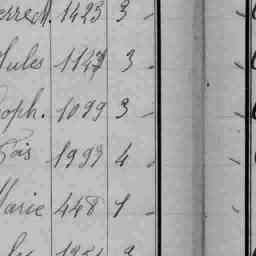 erre M. 1423 3
Jules 1143 3
oph. 1099 3
ois 1993 4
Marie 448 1